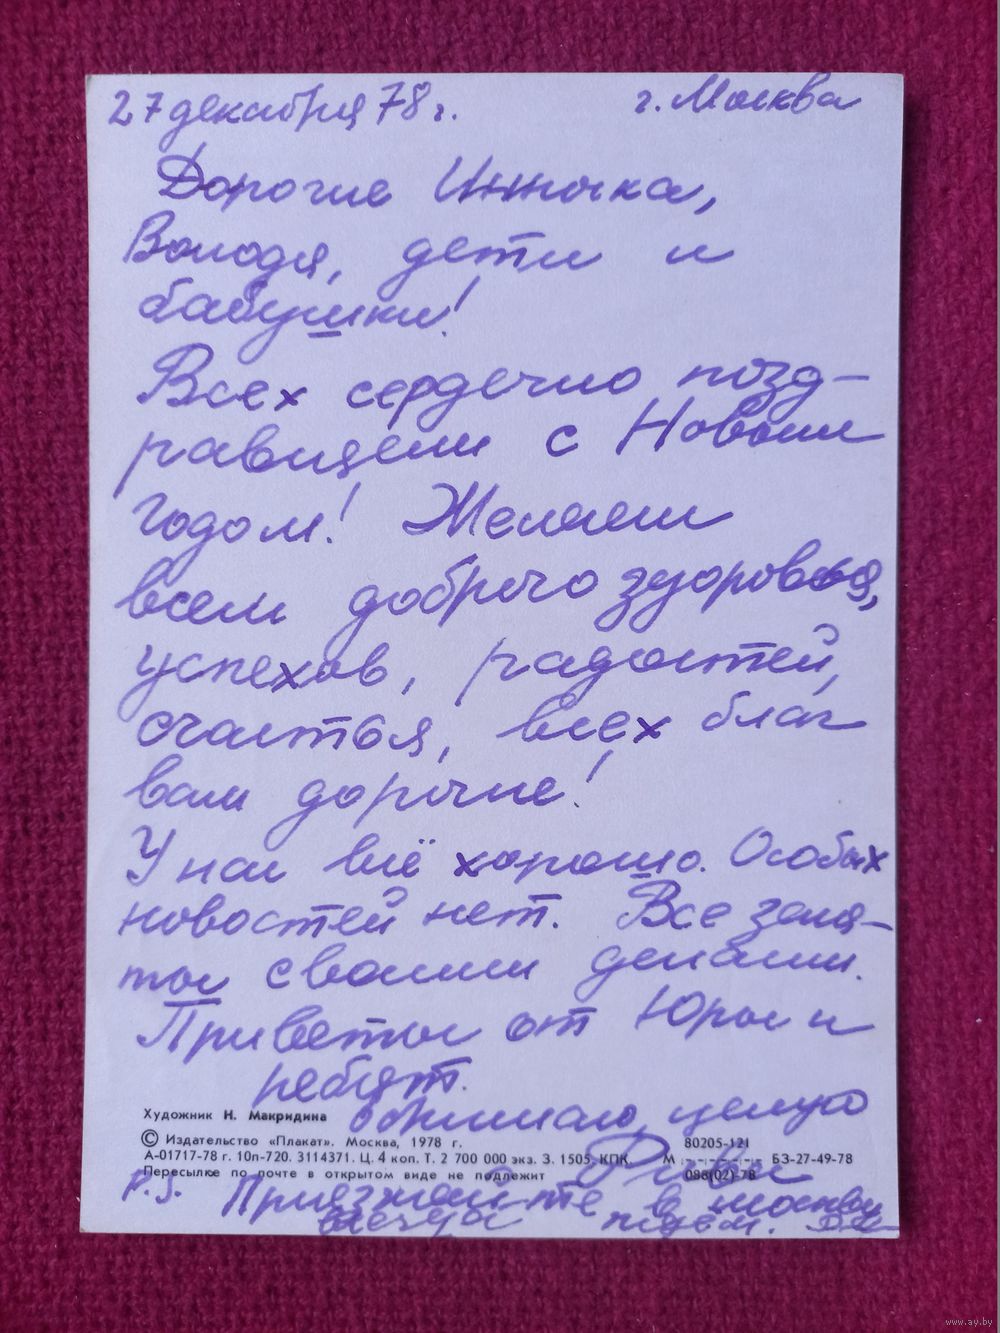 27 декабря 78 г. г. Москва
Дорогие Инночка,
Володя, дети и
бабушки!
Всех сердечно позд-
равляем с Новым
годом! Желаем
всем доброго здоровья,
успехов, радостей,
счастья, всех благ
вам дорогие!
У нас всё хорошо. Особых
новостей нет. Все заня-
ты своими делами.
Приветы от Юры и
ребят.
Обнимаю, целую
Художник Н. Макридина
© Издательство «Плакат». Москва, 1978 г. 80205-121
А-01717-78 г. 10п-720. 3114371. Ц. 4 коп. Т. 2 700 000 экз. З. 1505, КПК. М БЗ-27-49-78
Пересылке по почте в открытом виде не подлежит 088(02)-78
P.S. Приезжайте в Москву
ждем.
www.ay.by